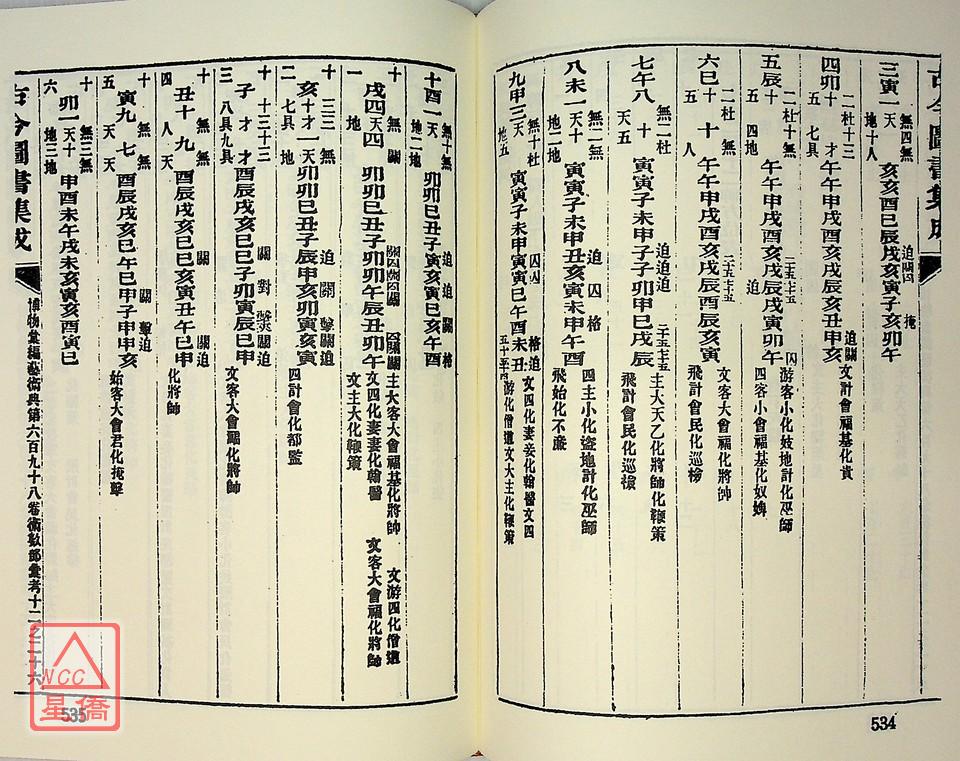 古今圖書集成
三寅一 無四無 地十人 亥亥酉巳辰戌亥寅子亥卯午 迫關囚 掩
四卯十 二杜十三 五 才 七具 午午申戌酉亥戌辰亥午巳亥 迫關 文計會福基化貴
五辰十 二杜十無 五 四地 午午申戌酉亥戌辰戌寅卯午 二五七五 迫 囚 游客小化妓地計化巫師
四客小會福基化奴婢
六巳十 二杜無 五 十人 午午申戌酉亥戌辰酉辰亥寅 二十五七五 文客大會福化將帥
飛計會民化巡檢
七午八 無一杜 天五 寅寅子未申子子卯申巳戌辰 迫迫迫 二十五七五 主大天乙化將師化鞭策
飛計會民化巡檢
八未一 無二無 天十 地二地 寅寅子未申丑亥寅未申午酉 迫囚格 四主小化盜地計化巫師
飛始化不廉
九申三 無十杜 天 地五 寅寅子未申寅寅巳午酉未丑 囚囚 格迫 文四化妻妾化翰醫文四
游化僧道文大主化鞭策
十酉一 無十無 天 地二地 卯卯巳丑子寅亥寅巳亥午酉 迫迫關格
十一 戌四天四 無關 地 卯卯巳丑子卯卯午辰丑卯午 主大客大會福基化將帥 文游四化僧道
文四化妻妾化翰醫 文客大會福化將師
文主大化鞭策
十二 亥十才一天 三三 七具 卯卯巳丑子辰申亥卯寅亥寅 迫關擊關迫 四計會化都監
十三 子 十三十三 才才 八具九具 酉辰戌亥巳子卯寅辰巳申 關對擊關迫 文客大會福化將帥
十四 丑十九 無無 人天 酉辰戌亥巳巳亥寅丑午巳申 關關迫 化將師
十五 寅九七 無無 天天 酉辰戌亥巳午巳申子申申亥 關擊迫 始客大會君化掩擊
十六 卯一天十 無三無 地三地 申酉未午戌未亥寅亥酉寅巳
古今圖書集成
博物彙編藝術典第六百九十八卷術數部彙考十二之三十六
535
534
NCC
星僑